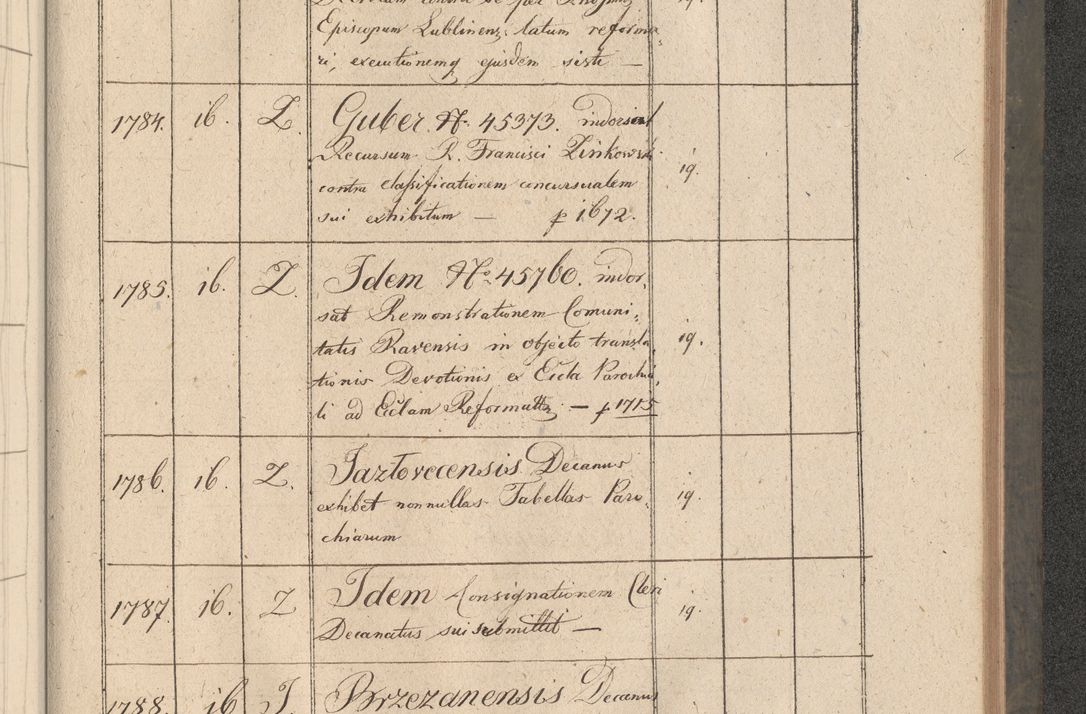 Episcopum Lublinens: latum reforma
ri, executionemq ejusdem sisti —
1784. ib. Z. Guber. No. 45373. indorsat
Recursum R. Francisci Zinkowski
contra classificationem concursualem
19.
sui exhibitum — p 1672.
1785. ib. Z. Idem No. 45760. indor,
sat Remonstrationem Comuni,
tatis Ravensis in objecto transla
19.
tionis Devotionis ex Eccla Parochia,
li ad Ecclam Reformatt: — p 1715
1786. ib. Z. Jaztovecensis Decanus
exhibet nonnullas Tabellas Paro,
19.
chiarum
1787. ib. Z Idem Consignationem Cleri
19.
Decanatus sui submittit —
1788. ib J. Brzezanensis Decanus